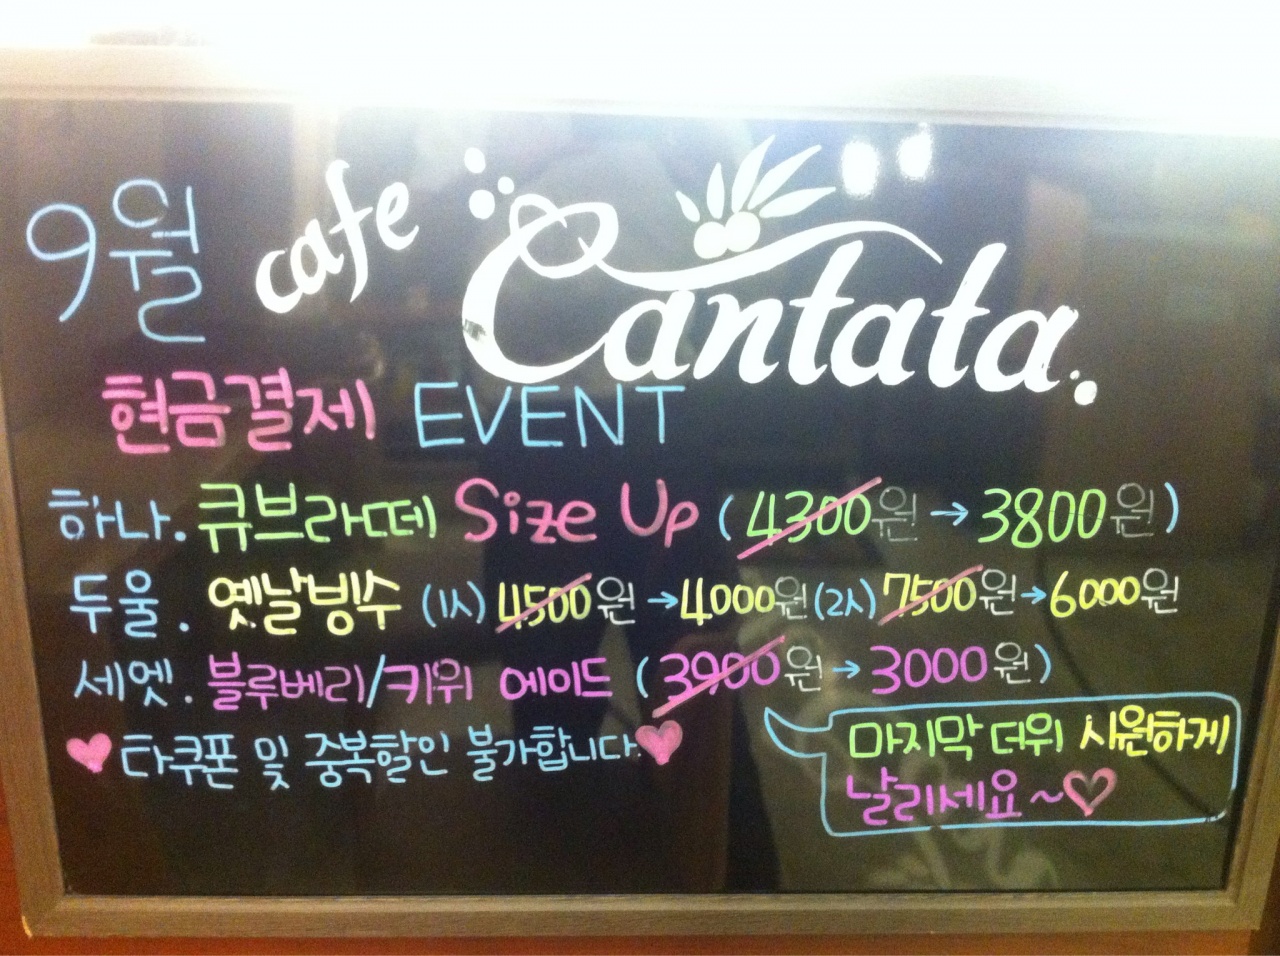 9월 cafe Cantata.
현금결제 EVENT
하나. 큐브라떼 Size Up (4300원 → 3800원)
두울. 옛날빙수 (1人) 4500원 → 4000원 (2人) 7500원 → 6000원
세엣. 블루베리/키위 에이드 (3900원 → 3000원)
♥ 타쿠폰 및 중복할인 불가합니다. ♥
마지막 더위 시원하게
날리세요 ~♡